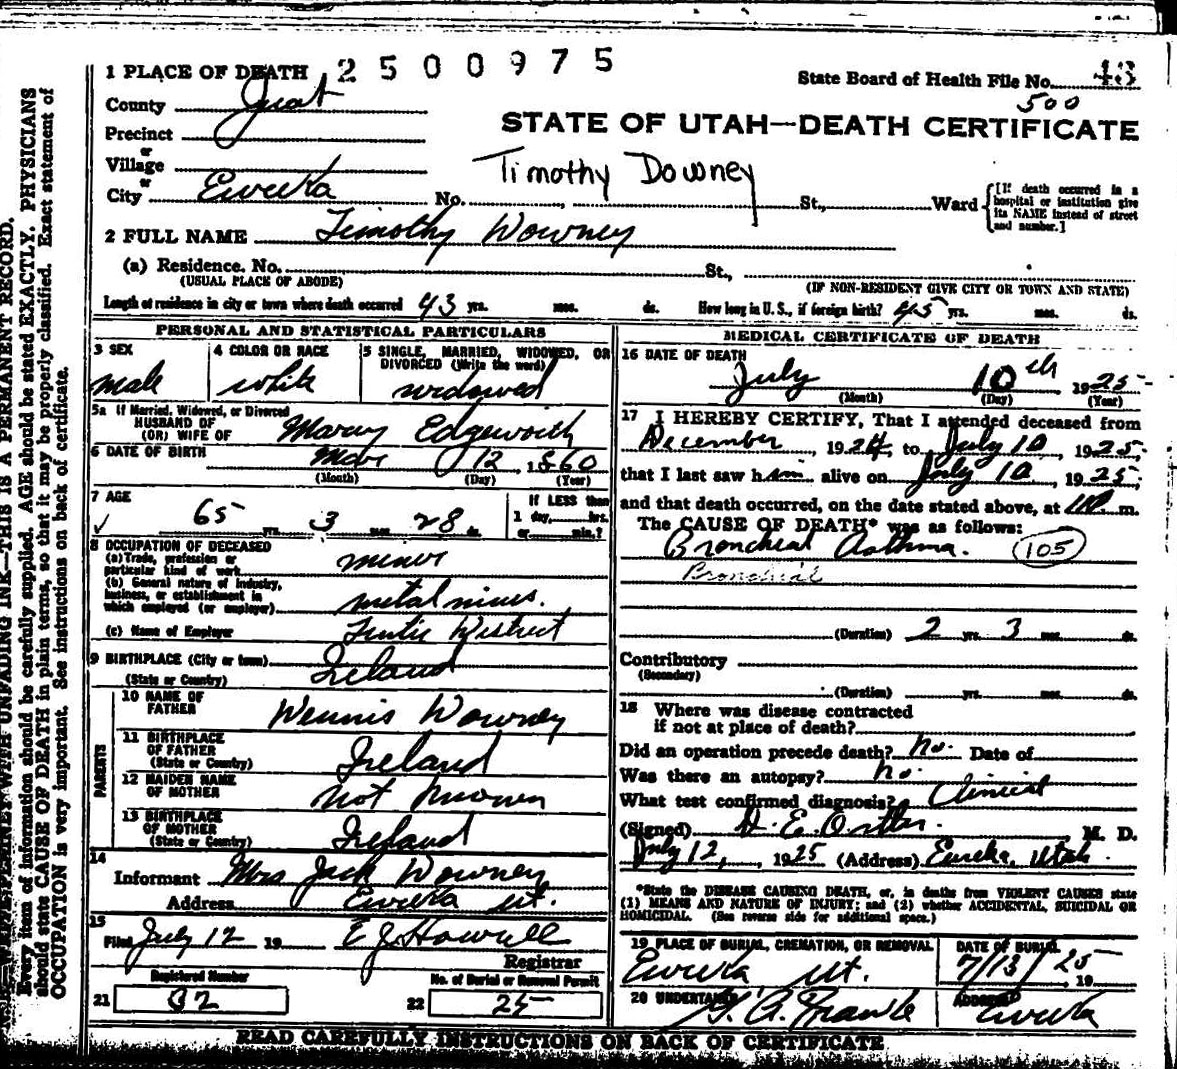 2500975
1 PLACE OF DEATH
State Board of Health File No. 43
500
County Juab
STATE OF UTAH—DEATH CERTIFICATE
Precinct
or
Village
Timothy Downey
or
City Eureka No. , St., Ward
[If death occurred in a hospital or institution give its NAME instead of street and number.]
2 FULL NAME Timothy Downey
(a) Residence. No. St.,
(USUAL PLACE OF ABODE) (IF NON-RESIDENT GIVE CITY OR TOWN AND STATE)
Length of residence in city or town where death occurred 43 yrs. mos. ds. How long in U.S., if foreign birth? 45 yrs. mos. ds.
PERSONAL AND STATISTICAL PARTICULARS
3 SEX
male
4 COLOR OR RACE
white
5 SINGLE, MARRIED, WIDOWED, OR DIVORCED (Write the word)
widowed
5a If Married, Widowed, or Divorced
HUSBAND OF
(OR) WIFE OF Mary Edgeworth
6 DATE OF BIRTH Mar 12, 1860
(Month) (Day) (Year)
7 AGE
65 yrs. 3 mos. 28 ds.
If LESS than
1 day, hrs.
or min.?
8 OCCUPATION OF DECEASED
(a) Trade, profession or
particular kind of work miner
(b) General nature of industry,
business, or establishment in
which employed (or employer) metal mines.
(c) Name of Employer Tintic District
9 BIRTHPLACE (City or town)
(State or Country) Ireland
PARENTS
10 NAME OF
FATHER Dennis Downey
11 BIRTHPLACE
OF FATHER
(State or Country) Ireland
12 MAIDEN NAME
OF MOTHER Not Known
13 BIRTHPLACE
OF MOTHER
(State or Country) Ireland
14
Informant Mrs Jack Downey
Address Eureka Ut.
15
Filed July 12 19 E J Howell
Registrar
Registered Number
21 32
No. of Burial or Removal Permit
22 25
MEDICAL CERTIFICATE OF DEATH
16 DATE OF DEATH
July 10th 1925
(Month) (Day) (Year)
17 I HEREBY CERTIFY, That I attended deceased from
December, 1924, to July 10, 1925,
that I last saw him alive on July 10, 1925,
and that death occurred, on the date stated above, at m.
The CAUSE OF DEATH* was as follows:
Bronchial Asthma. 105
Bronchial
(Duration) 2 yrs. 3 mos. ds.
Contributory
(Secondary)
(Duration) yrs. mos. ds.
18 Where was disease contracted
if not at place of death?
Did an operation precede death? no. Date of
Was there an autopsy? no.
What test confirmed diagnosis? Clinical
(Signed) D. E. M. D.
July 12, 1925 (Address) Eureka, Utah.
*State the DISEASE CAUSING DEATH, or, in deaths from VIOLENT CAUSES state
(1) MEANS AND NATURE OF INJURY; and (2) whether ACCIDENTAL, SUICIDAL OR
HOMICIDAL. (See reverse side for additional space.)
19 PLACE OF BURIAL, CREMATION, OR REMOVAL
Eureka Ut.
DATE OF BURIAL
7/13/25 19
20 UNDERTAKER
ADDRESS
Eureka
READ CAREFULLY INSTRUCTIONS ON BACK OF CERTIFICATE
THIS IS A PERMANENT RECORD.
Every item of information should be carefully supplied. AGE should be stated EXACTLY. PHYSICIANS
should state CAUSE OF DEATH in plain terms, so that it may be properly classified. Exact statement of
OCCUPATION is very important. See instructions on back of certificate.